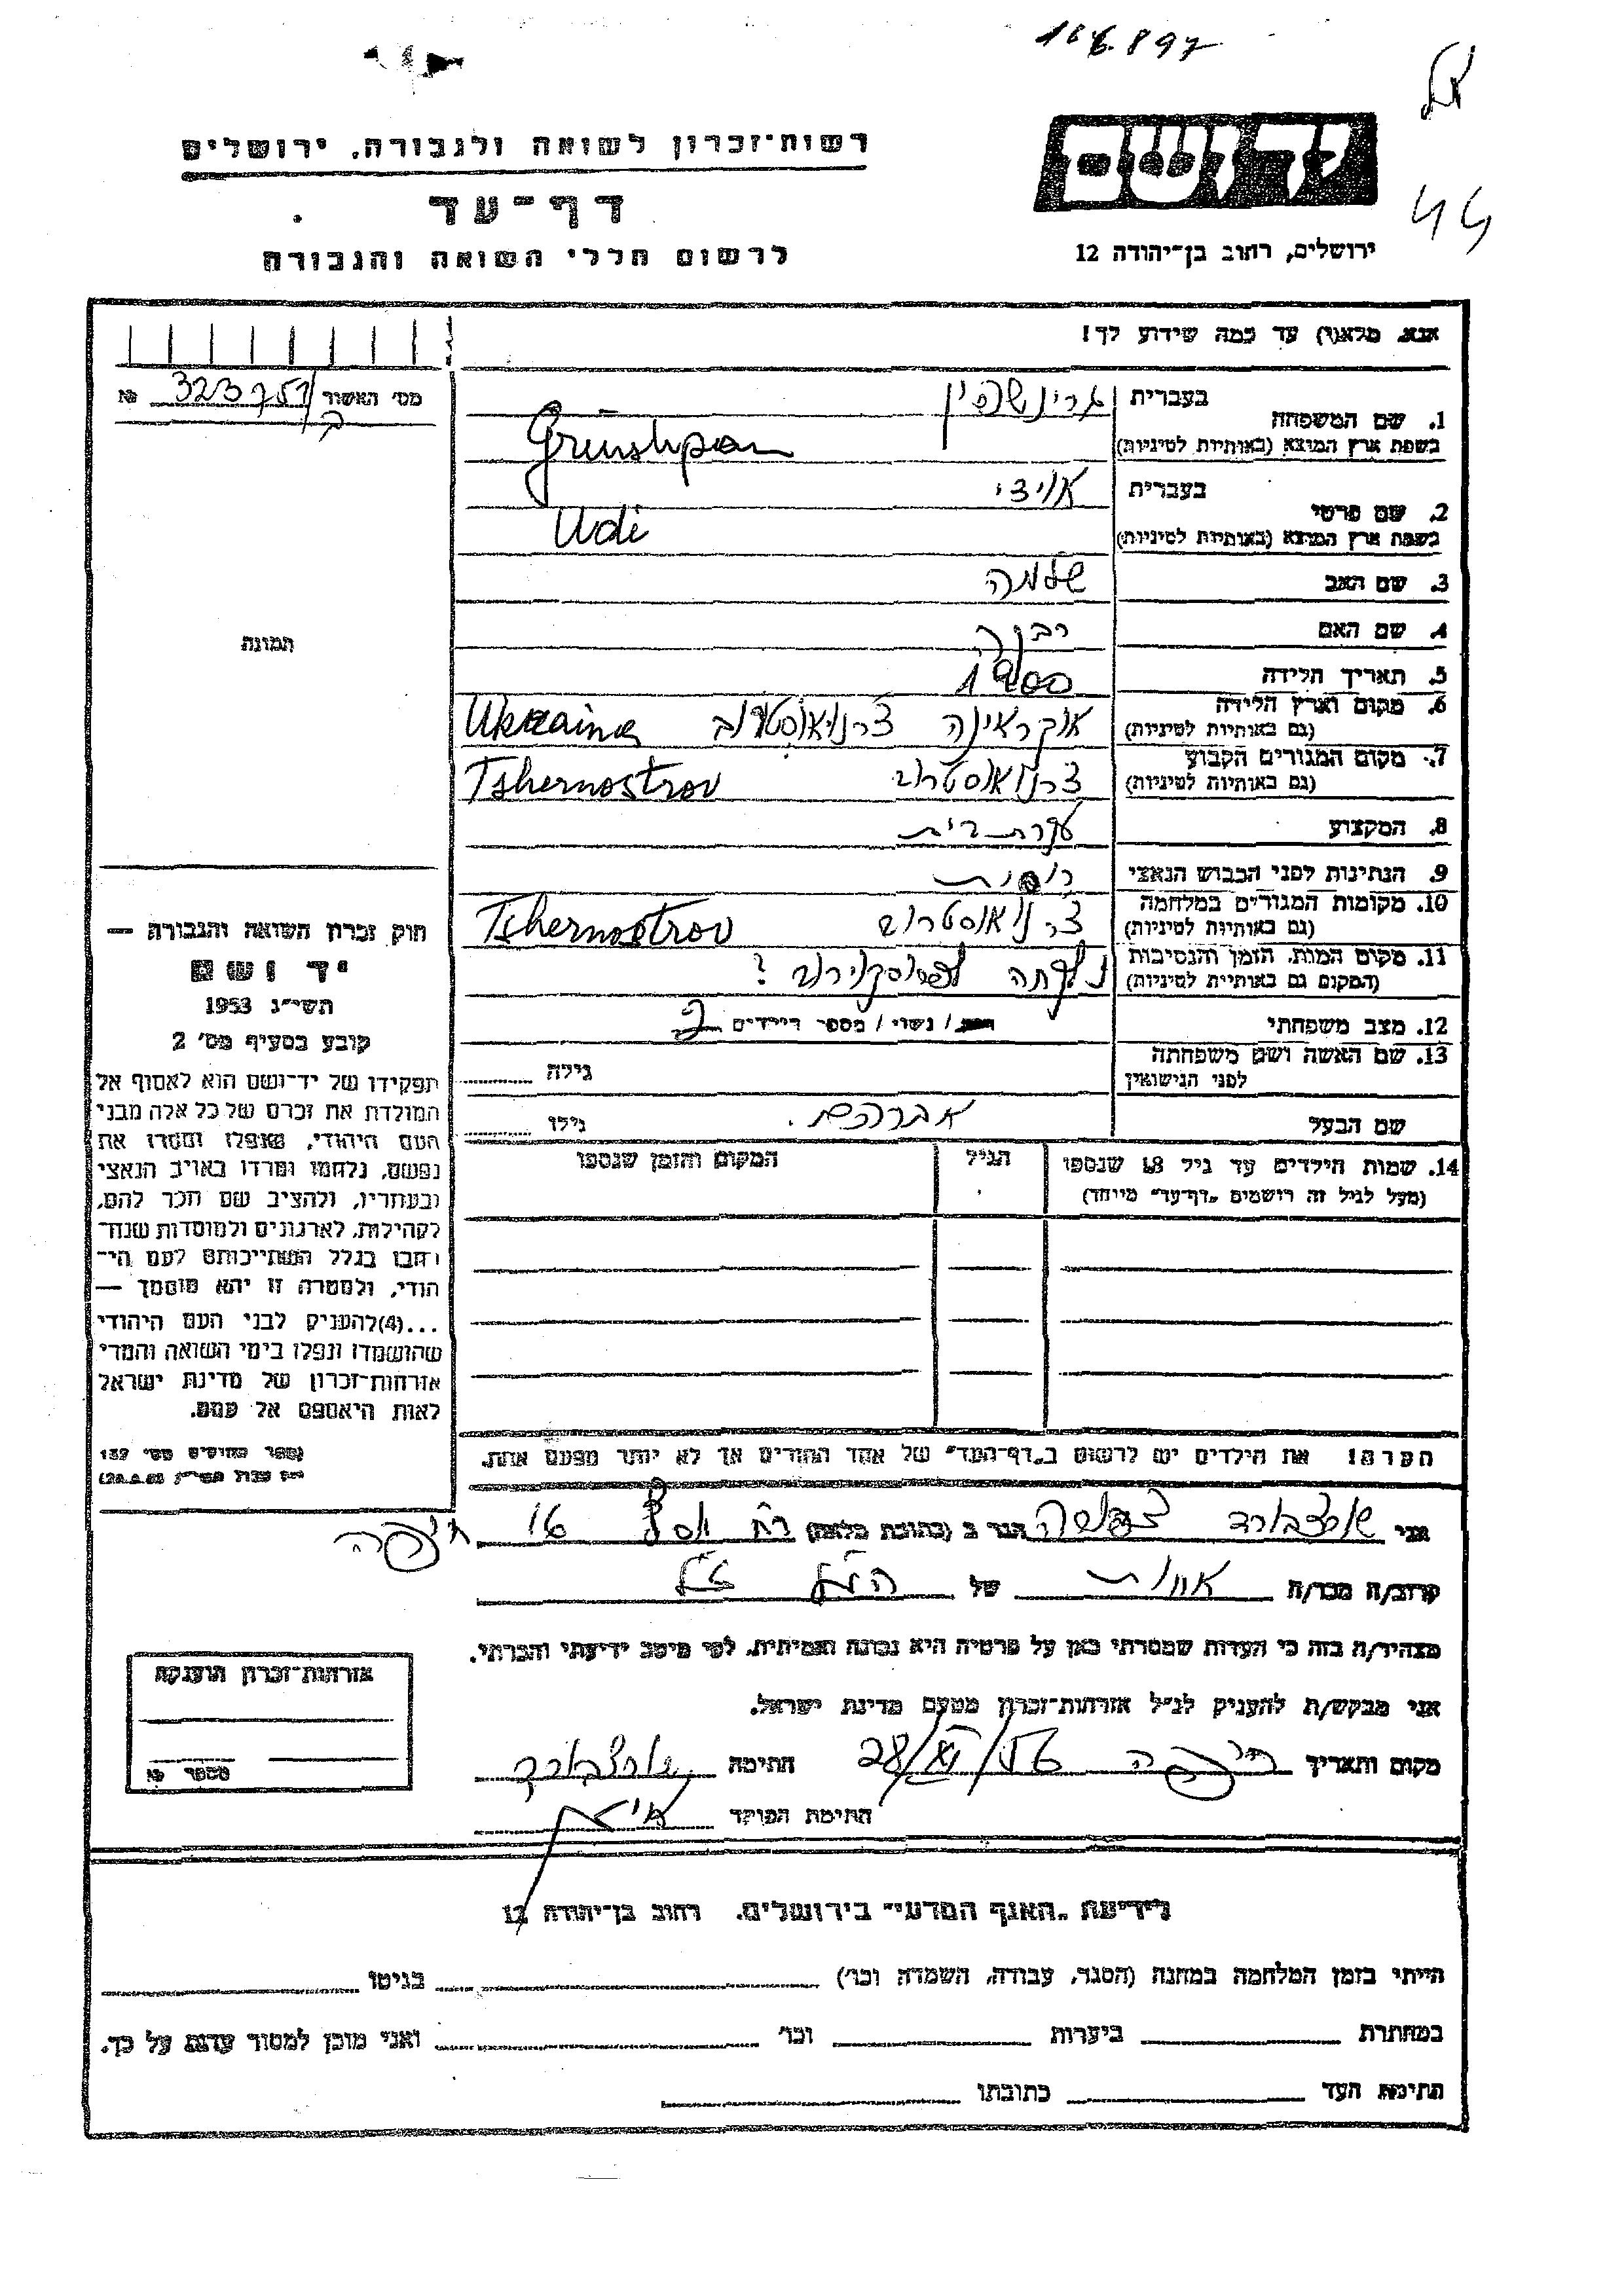 רשות־זכרון לשואה ולגבורה, ירושלים
יד ושם
44
דף־עד
לרשום חללי השואה והגבורה
ירושלים, רחוב בן־יהודה 12
אנא, מלא(י) עד כמה שידוע לך!
מס׳ האשור 323751 №
1. שם המשפחה בעברית גרינשפין
בשפת ארץ המוצא (באותיות לטיניות) Grünshpan
2. שם פרטי בעברית אידי
בשפת ארץ המוצא (באותיות לטיניות) Udi
3. שם האב שלמה
4. שם האם רבקה
תמונה
5. תאריך הלידה 1900
6. מקום וארץ הלידה (גם באותיות לטיניות) אוקראינה צרנואוסטרוב Ukraina
7. מקום המגורים הקבוע (גם באותיות לטיניות) צרנואוסטרוב Tshernostrov
8. המקצוע עקרת־בית
9. הנתינות לפני הכבוש הנאצי רוסית
10. מקומות המגורים במלחמה (גם באותיות לטיניות) צרנואוסטרוב Tshernostrov
11. מקום המות, הזמן והנסיבות (המקום גם באותיות לטיניות) נלקחה לפרוסקירוב ?
12. מצב משפחתי רווק / נשוי / מספר הילדים 2
13. שם האשה ושם משפחתה לפני הנישואין גילה
שם הבעל אברהם. גילו
14. שמות הילדים עד גיל 18 שנספו הגיל המקום והזמן שנספו
(מעל לגיל זה רושמים „דף־עד״ מיוחד)
חוק זכרון השואה והגבורה —
יד ושם
תשי״ג 1953
קובע בסעיף מס׳ 2
תפקידו של יד־ושם הוא לאסוף אל
המולדת את זכרם של כל אלה מבני
העם היהודי, שנפלו ומסרו את
נפשם, נלחמו ומרדו באויב הנאצי
ובעוזריו, ולהציב שם וזכר להם,
לקהילות, לארגונים ולמוסדות שנח־
רבו בגלל השתייכותם לעם הי־
הודי, ולמטרה זו יהא מוסמך —
...(4) להעניק לבני העם היהודי
שהושמדו ונפלו בימי השואה והמרי
אזרחות־זכרון של מדינת ישראל
לאות היאספם אל עמם.
הערה! את הילדים יש לרשום ב„דף־העד״ של אחד ההורים אך לא יותר מפעם אחת.
אני הגר ב (כתובת מלאה) רח 16 חיפה
קרוב/ה מכר/ה אחות של הנ״ל
מצהיר/ה בזה כי העדות שמסרתי כאן על פרטיה היא נכונה ואמיתית, לפי מיטב ידיעתי והכרתי.
אני מבקש/ת להעניק לנ״ל אזרחות־זכרון מטעם מדינת ישראל.
אזרחות־זכרון הוענקה
מקום ותאריך חיפה 28/ חתימה
מספר №
חתימת הפוקד
לידיעת „האגף המדעי״ בירושלים, רחוב בן־יהודה 12
הייתי בזמן המלחמה במחנה (הסגר, עבודה, השמדה וכו׳) בגיטו
במחתרת ביערות וכו׳ ואני מוכן למסור עדות על כך.
חתימת העד כתובתו